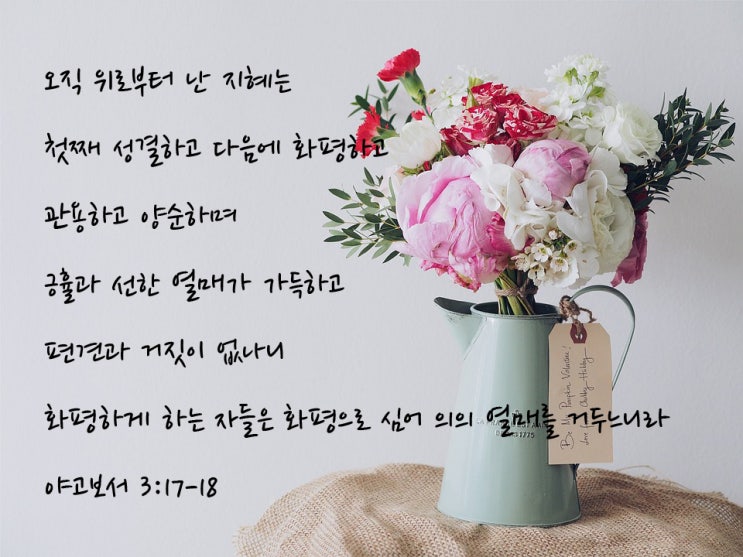 오직 위로부터 난 지혜는
첫째 성결하고 다음에 화평하고
관용하고 양순하며
긍휼과 선한 열매가 가득하고
편견과 거짓이 없나니
화평하게 하는 자들은 화평으로 심어 의의 열매를 거두느니라
야고보서 3:17-18
Be My Pumpkin Valentine!
Love
Hubby
1775